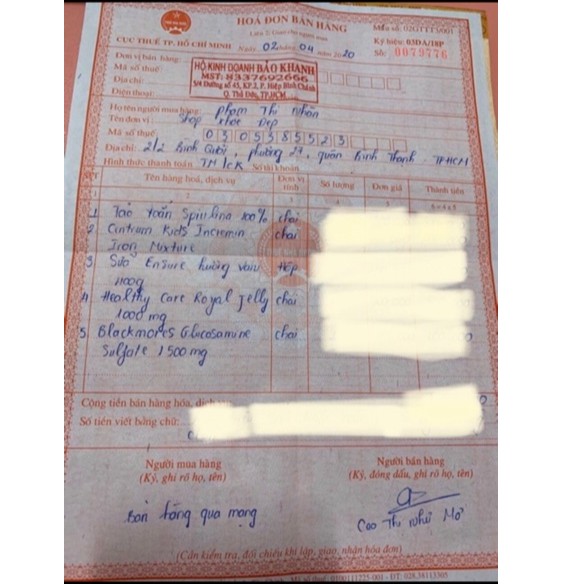 HOÁ ĐƠN BÁN HÀNG
Liên 2: Giao cho người mua
Mẫu số: 02GTTT3/001
CỤC THUẾ TP. HỒ CHÍ MINH
Ngày 02 tháng 04 năm 2020
Ký hiệu: 03DA/18P
Số: 0079776
Đơn vị bán hàng:
HỘ KINH DOANH BẢO KHANH
Mã số thuế:
MST: 8337692666
Địa chỉ:
5/4 Đường số 45, KP.2, P. Hiệp Bình Chánh
Q. Thủ Đức, TP.HCM
Điện thoại:
Họ tên người mua hàng: Phạm Thị Nhân
Tên đơn vị: Shop khoẻ Đẹp
Mã số thuế: 0305385523
Địa chỉ: 2/2 Bình Quới, phường 27, quận Bình Thạnh - TPHCM
Hình thức thanh toán: TM/CK Số tài khoản
STT Tên hàng hoá, dịch vụ Đơn vị tính Số lượng Đơn giá Thành tiền
1 2 3 4 5 6=4x5
1. Tảo xoắn Spirulina 100% chai
2 Centrum Kids Incremin Iron Mixture chai
3 Sữa Ensure hương vani 400g hộp
4 Healthy Care Royal Jelly 1000 mg chai
5 Blackmores Glucosamine Sulfate 1500 mg chai
Cộng tiền bán hàng hóa, dịch vụ:
Số tiền viết bằng chữ:
Người mua hàng
(Ký, ghi rõ họ, tên)
Người bán hàng
(Ký, đóng dấu, ghi rõ họ, tên)
Bán hàng qua mạng
Cao Thị Như Mơ
(Cần kiểm tra, đối chiếu khi lập, giao, nhận hóa đơn)
ĐT: 028.38113305